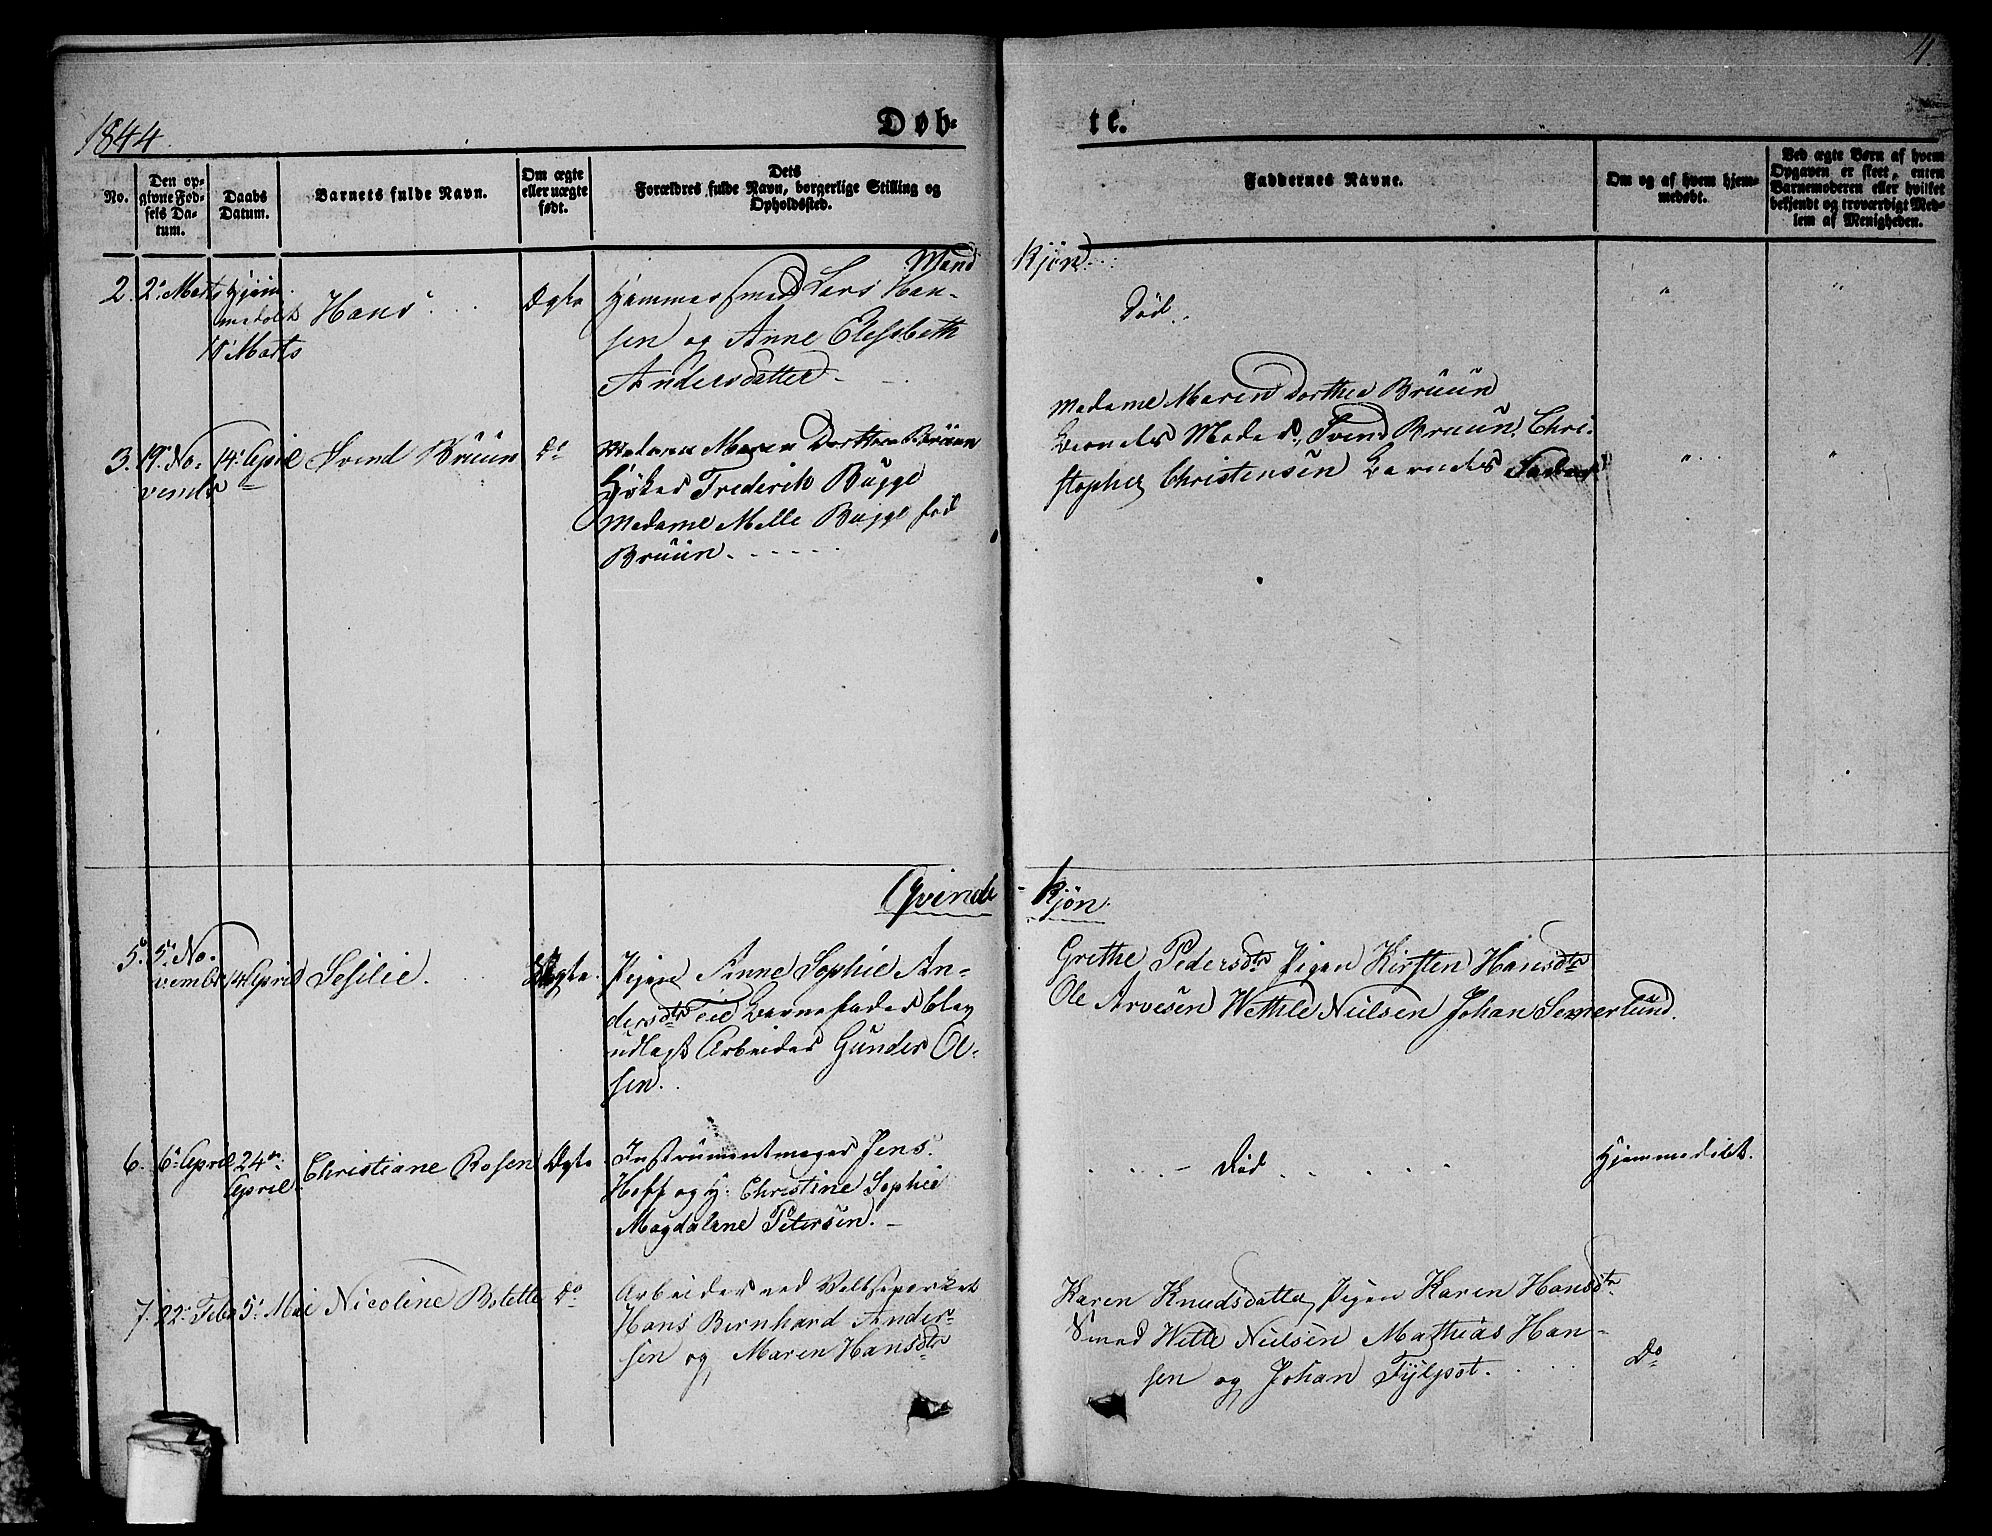 4.
1844.
Døb-
te.
No.
Den op-
givne Fød-
sels Da-
tum.
Daabs
Datum.
Barnets fulde Navn.
Om ægte
eller uægte
født.
Dets
Forældres fulde Navn, borgerlige Stilling og
Opholdssted.
Faddernes Navne.
Om og af hvem hjem-
medøbt.
Ved ægte Børn af hvem
Opgaven er skeet, enten
Barnemoderen eller hvilket
bekjendt og troværdigt Med-
lem af Menigheden.
Mand
Kjøn
2. 2. Marts
Hjem-
medøbt
Marts
Hans
Ægte
Hammersmed Lars Han-
sen og Anne Elisabeth
Andersdatter
Død.
3. 19. No-
vembr
14. April
Svend Bruun
Do
Madame Maren Dorthea Bruun
Høker Frederik Bugge
Madame Melle Bugge fød
Bruun
Madame Maren Dorthea Bruun
Barnets Moder, Svend Bruun, Chri-
stopher Christensen Barnets Fader
Qvinde
-Kjøn
5. 5. No-
vembr
14 April
Sesilie.
Pigen Anne Sophie An-
dersdtr Barnefader blev
udlagt Arbeider Gunder Ol-
sen.
Grethe Pedersdtr Pigen Kirsten Hansdtr
Ole Arvesen Wethle Nielsen Johan Semerlund.
6. 6. April
24de
April
Christiane Rosen
Ægte
Instrumentmager Jens
Hoff og H: Christine Sophie
Magdalene Petersen.
Død
Hjemmedøbt.
7. 22. Febr 5. Mai
Nicoline Betette
Do
Arbeider ved
Hans Bernhard Ander-
sen og Maren Hansdtr
Karen Knudsdatter Pigen Karen Hansdtr
Smed Wetle Nielsen Mathias Han-
sen og Johan
Do